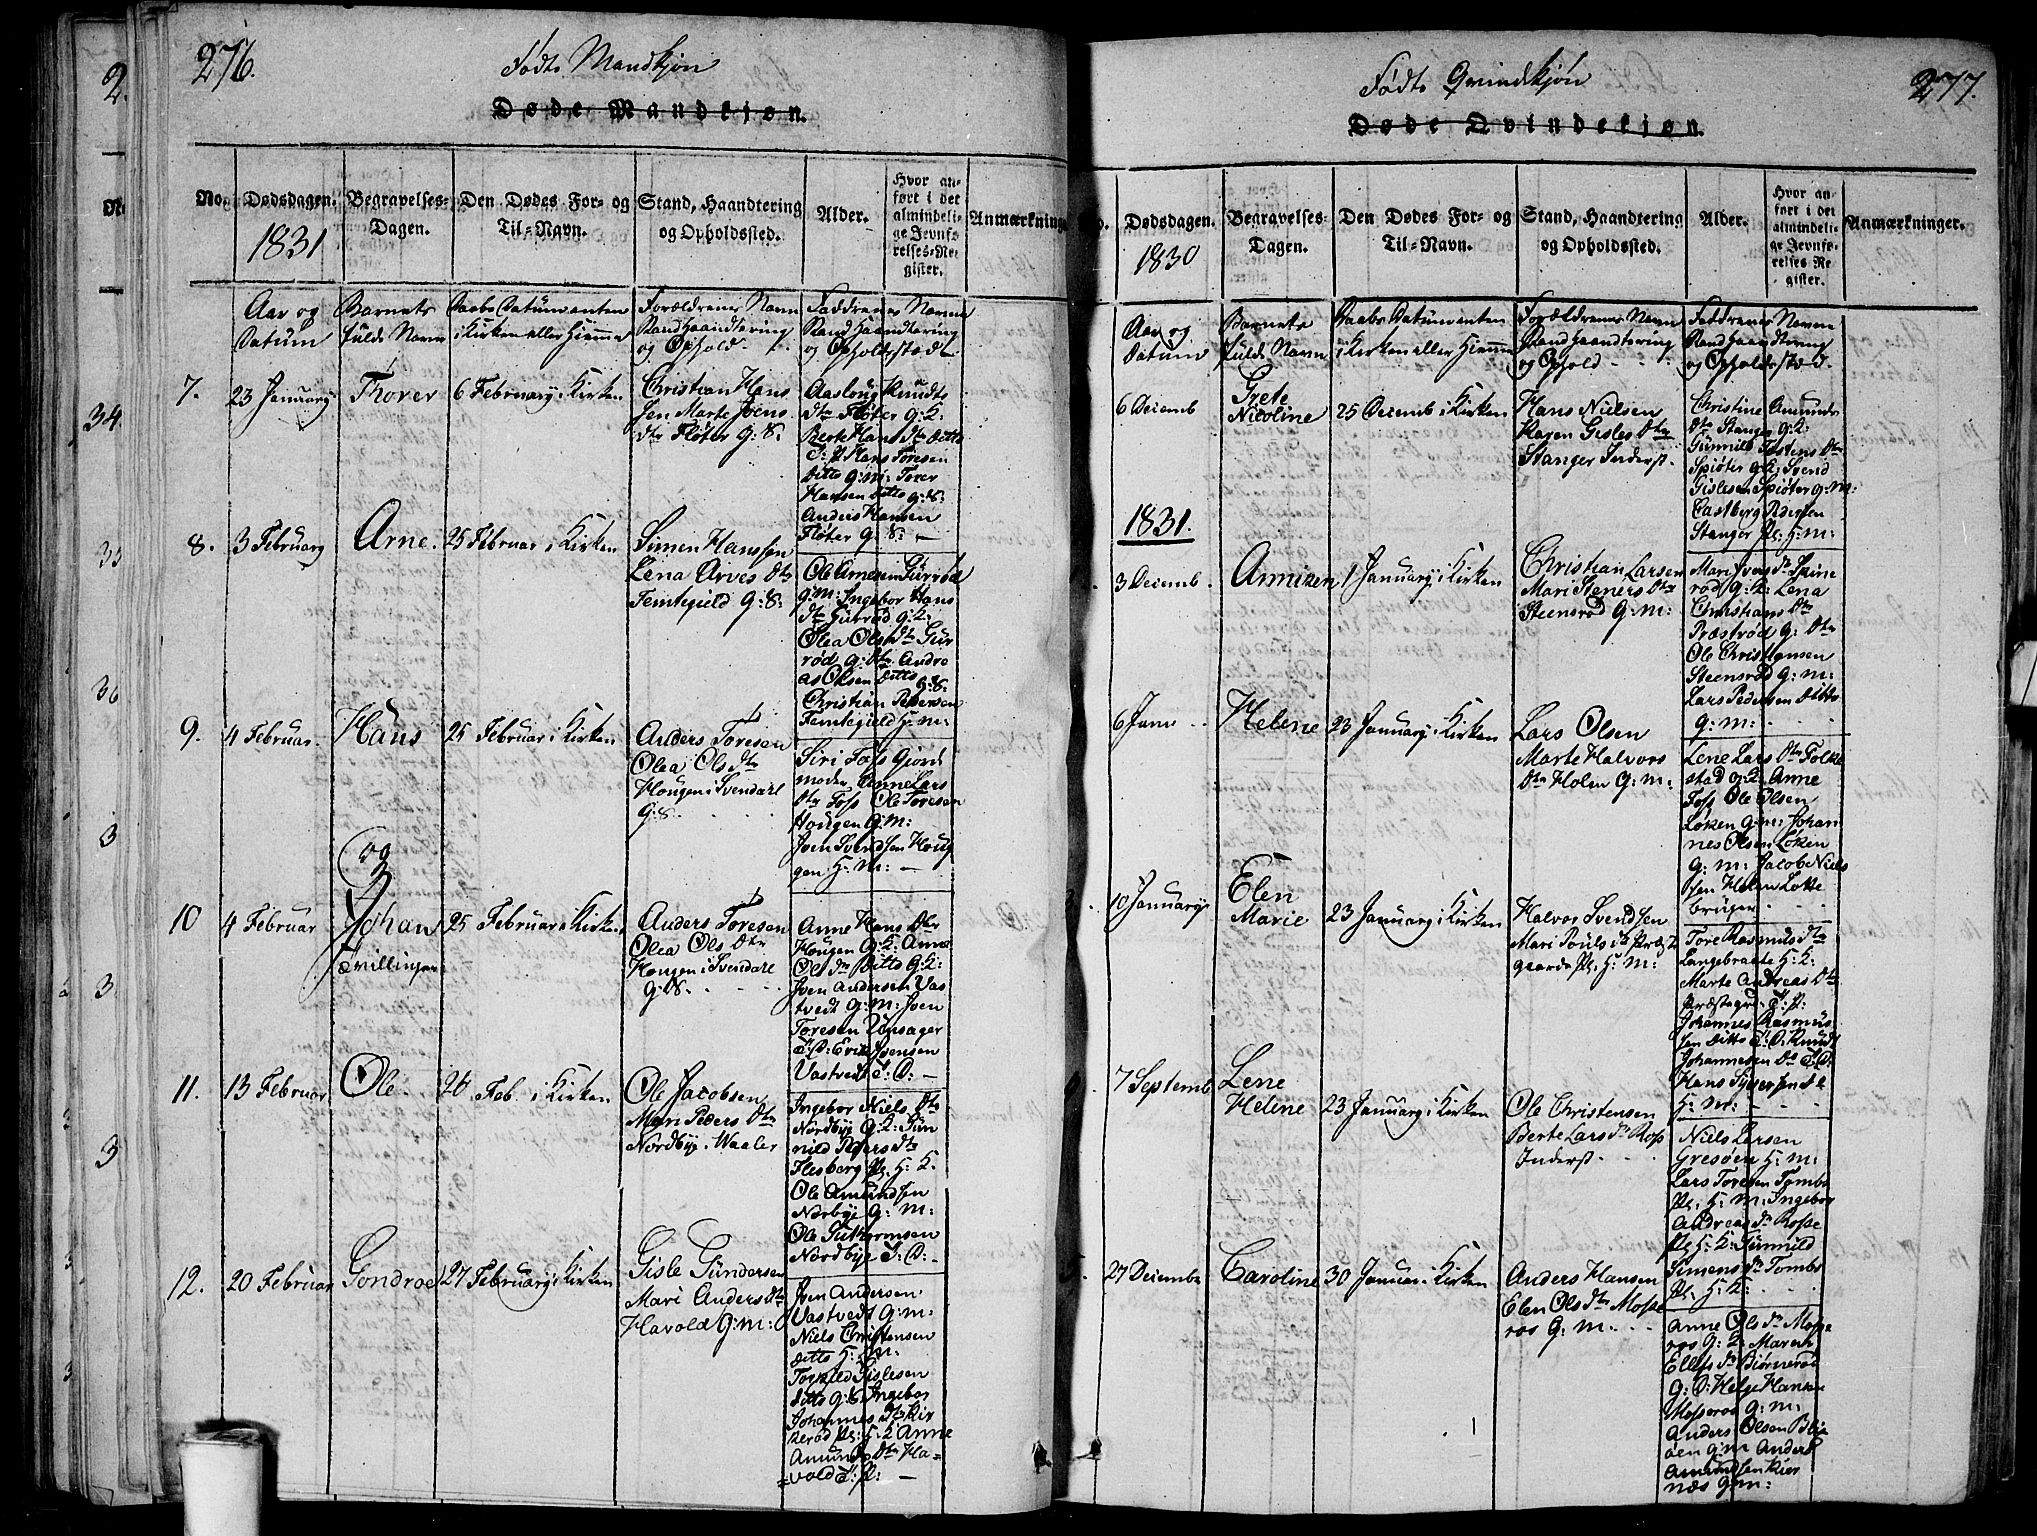 276.
Fødte Mandkjøn
Døde Mandkjøn.
No.
Dødsdagen.
1831
Begravelses-
Dagen.
Den Dødes For- og
Til-Navn.
Stand, Haandtering
og Opholdssted.
Alder.
Hvor an-
ført i det
almindeli-
ge Jevnfø-
relses-Re-
gister.
Anmærkninge
Aar og
Datum
Barnets
fulde Navn
Daabs Datum enten
i Kirken eller Hiemme
Forældrenes Navn
Stand Haandtering
og Ophold
Faddrenes Navne
Stand Haandtering
og Opholdsstæd
7.
23 January
Thorer
6 February i Kirken
Christian Hans
sen Marte Joens
dtr Fløter G: S:
Aasloug Knudts
dtr Fløter G: K:
Berte Hans dtr Ditto
T: P: Hans Toresen
Ditto G: M: Torer
Hansen Ditto G: S:
Anders Hansen
Fløter G: S: —
8.
3 February
Arne.
25 Februar i Kirken
Simen Hanssen
Lena Arves dtr
Femtegield G: S:
Ole Arnesen Gurrød
G: M: Ingebor Hans
dtr Gurrød G: K:
Olea Ols dtr Gur
rød G: dtr Andre
as Olsen Ditto G: S:
Christian Pedersen
Femtegield H: M:
9.
4 Februar
Hans
25 Februar i Kirken
Anders Toresen
Olea Ols dtr
Hougen i Svendahl
G: S:
Siri Foss Giord
moder Anne Lars
dtr Foss Ole Toresen
Hougen G: M:
Joen Svendsen Houg
gen H: M: —
og
10
4 Februar
Johan
tvillinger
25 Februar i Kirken
Anders Toresen
Olea Ols dtr
Hougen i Svendahl
G: S:
Anne Hans dtr
Hougen G: K: Anne
Ols dtr Ditto G: K:
Joen Andersen Vas
tvedt G: M: Joen
Toresen Unsager
T: D: Erik Joensen
Vastvedt T: D: —
11.
13 Februar
Ole
26 Feb. i Kirken
Ole Jacobsen
Mari Peders dtr
Nordbye i Waaler
Ingebor Niels dtr
Nordbye G: K: Gun
nild Peders dtr
Flesberg Pl: H: K:
Ole Amundsen
Norbye G: M:
Ole Guthormsen
Nordbye T: D: —
12.
20 Februar
Gondroe
27 February i Kirken
Gisle Gundersen
Mari Anders dtr
Havold G: M:
Joen Andersen
Vastvedt G: M:
Niels Christensen
ditto H: M:
Torkild Gislesen
ditto G: S: Ingebor
Johannes dtr Kir
kerød Pl: H: K: Anne
Amunds dtr Ha=
=vold T: P: —
277.
Fødte Qvindkjøn
Døde Qvindekjøn.
Dødsdagen.
1830
Begravelses-
Dagen.
Den Dødes For- og
Til-Navn.
Stand, Haandtering
og Opholdssted.
Alder.
Hvor an-
ført i det
almindeli-
ge Jevnfø-
relses Re-
gister.
Anmærkninger.
Aar og
Datum
Barnets
fulde Navn
Daabs Datum enten
i Kirken eller Hiemme
Forældrenes Navn
Stand Haandtering
og Ophold
Faddrenes Navne
Stand Haandtering
og Opholdsstæd.
6 Deiemb
Grete
Nicoline
25 Deiemb i Kirken
Hans Nielsen
Karen Gisles dtr
Stanger Inderst.
Christine Amunds
dtr Stanger G: K:
Gunnild Tostens dtr
Spiøter G: K: Svend
Gislesen Spiøter G: M:
Castberg Pedersen
Stanger Pl: H: M:
1831.
3 Deiemb.
Annixen
1 January i Kirken
Christian Larsen
Mari Steners dtr
Steensrød G: M:
Mari Ivers dtr
rød G: K: Lena
Christians dtr
Præstrød G: dtr
Ole Christiansen
Steensrød G: M:
Lars Pedersen Ditto
G: M:
6 Janv
Helene
23 January i Kirken
Lars Olsen
Marte Halvors
dtr Holen G: M:
Lene Lars dtr Folke
stad G: K: Anne
Foss Ole Olsen
Løken G: M: Johan
nes Olsen Løken
G: M: Jacob Niels
sen Holen Lotte
bruger
10 January
Elen
Marie
23 January i Kirken
Halvor Svendsen
Mari Pouls dtr Præst
gaarde Pl: H: M:
Tore Rasmus dtr
Langebraate H: K:
Marte Andreas dtr
Præstegrd. T: P:
Johannes Rasmus
sen Ditto T: D: Knud
Johannesen do T: D:
Hans
H: M:
7 Septemb
Lene
Helene
23 January i Kirken
Ole Christensen
Berte Lars dtr Ross
Inderst
Niels Larsen
Gresøen H: M:
Lars Toresen Tombs
Pl: H: M: Ingebor
Andreas dtr Rosse
Pl: H: K: Gunnild
Simens dtr Tombs
Pl: H: K:
27 Deiembr
Caroline
30 Januar i Kirken
Anders Hansen
Elen Ols dtr Mosse
ros G: M:
Anne Ols dtr Mosse
ros G: K: Maren
Ellefs dtr Biørnerød
G: D: Helge Hansen
Mosseros G: M:
Anders Olsen
øen G: M Anders
Amundsen Kier
næs G: M: